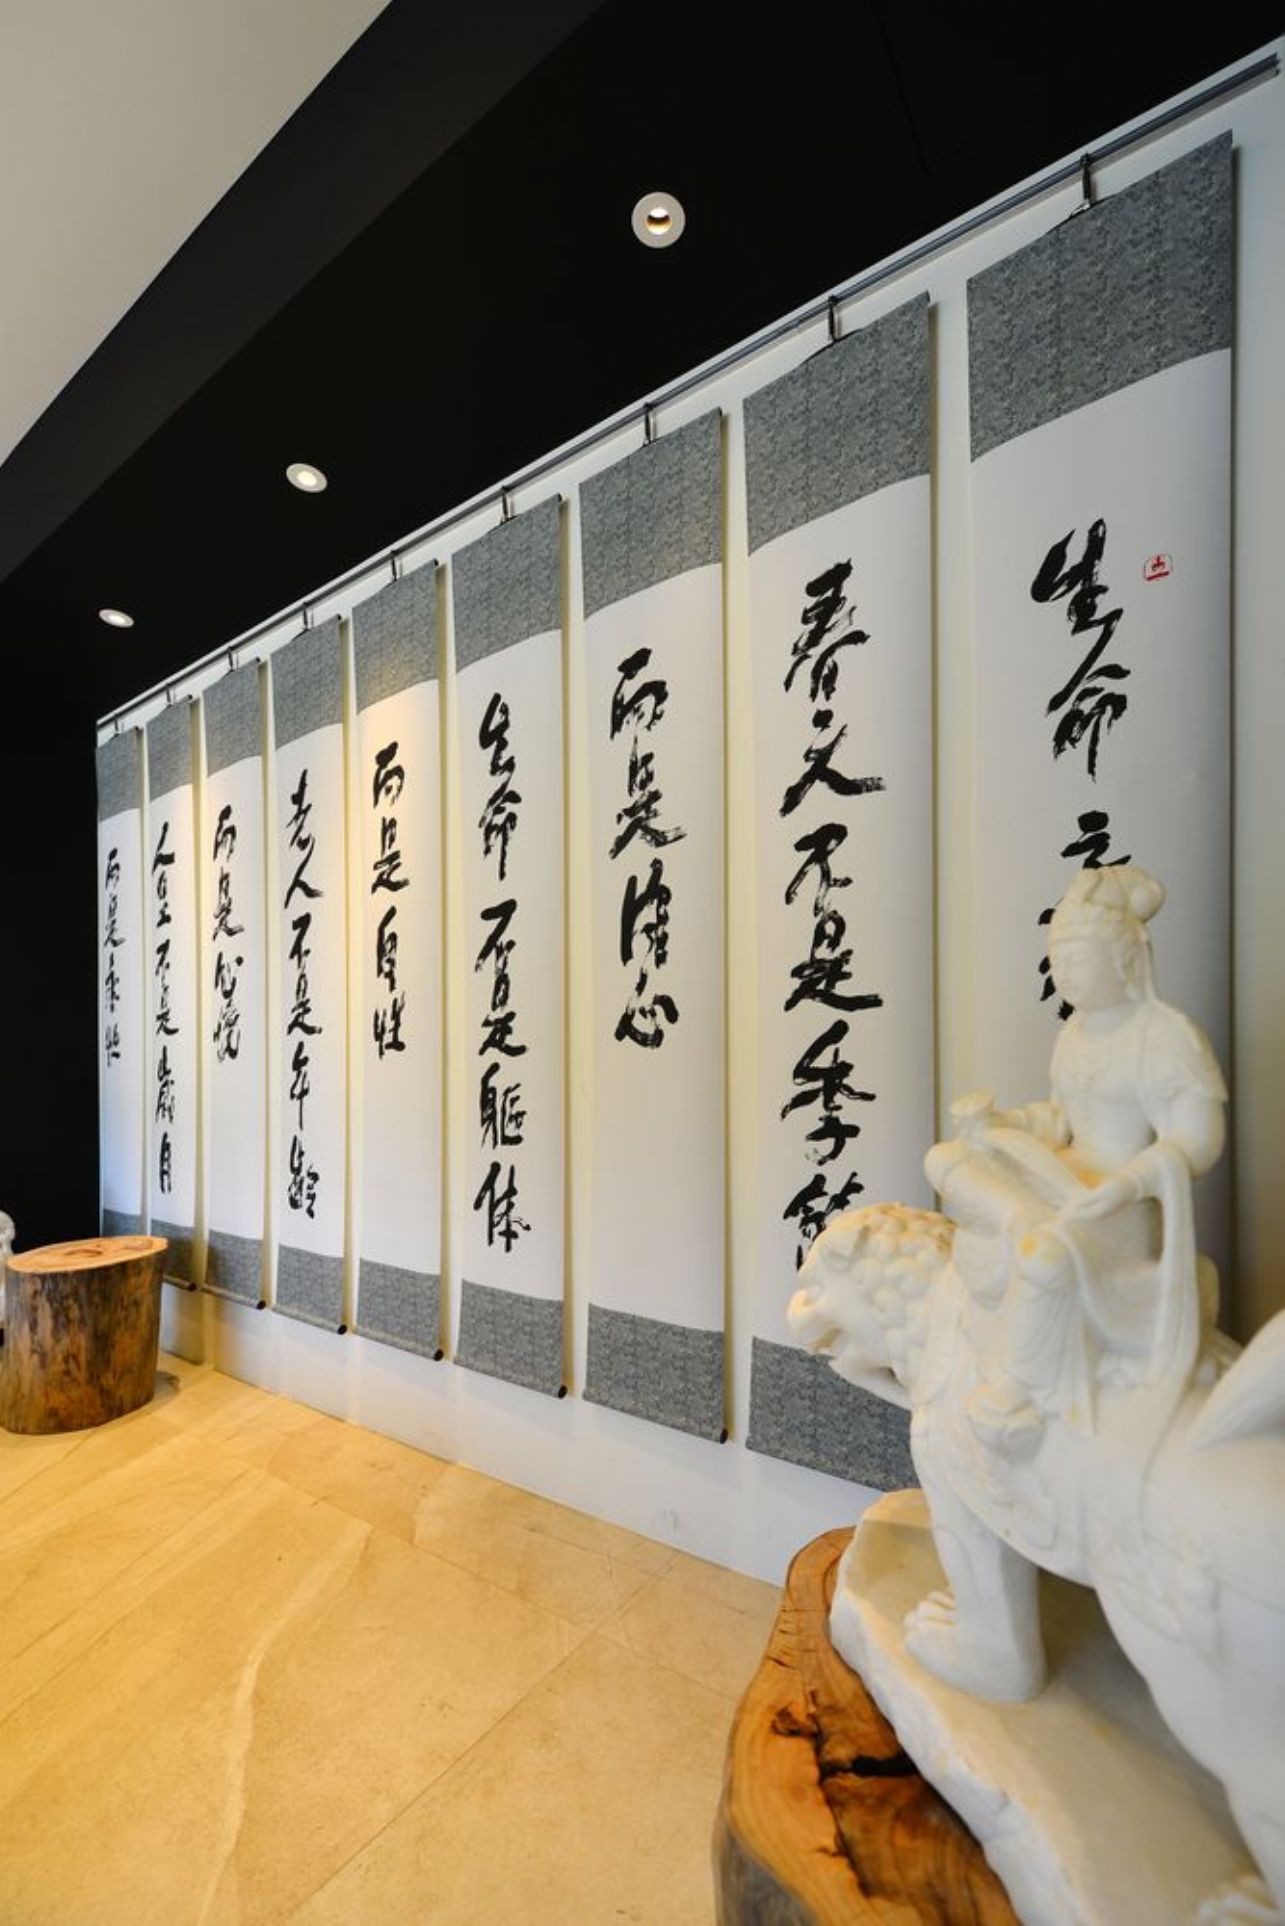 生命之
春天不是季節
而是心
生命不是軀体
而是自性
老人不是年齡
而是心境
人生不是歲月
而是